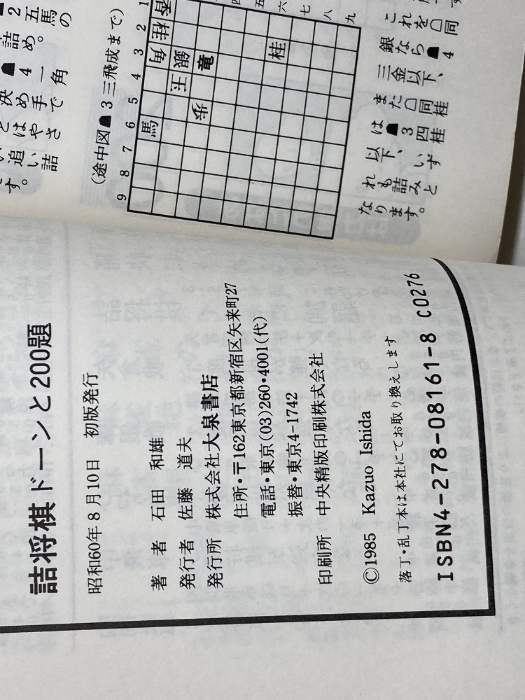 ▲2五馬の
詰め。
▲4一角
決め手で
とはやさ
い追い詰
す。
(途中図▲3三飛成まで)
1 2 3 4 5 6 7 8 9
四 五 六 七 八 九
桂
角
竜
桂
王
馬
これを△同
銀なら▲4
三金以下、
また△同桂
は▲3四桂
以下、いず
れも詰みと
なります。
詰将棋ドーンと200題
昭和60年8月10日 初版発行
著者 石田 和雄
発行者 佐藤 道夫
発行所 株式会社大泉書店
住所・〒162東京都新宿区矢来町27
電話・東京(03)260・4001(代)
振替・東京4-1742
印刷所 中央精版印刷株式会社
©1985 Kazuo Ishida
落丁・乱丁本は本社にてお取り換えします
ISBN4-278-08161-8 C0276